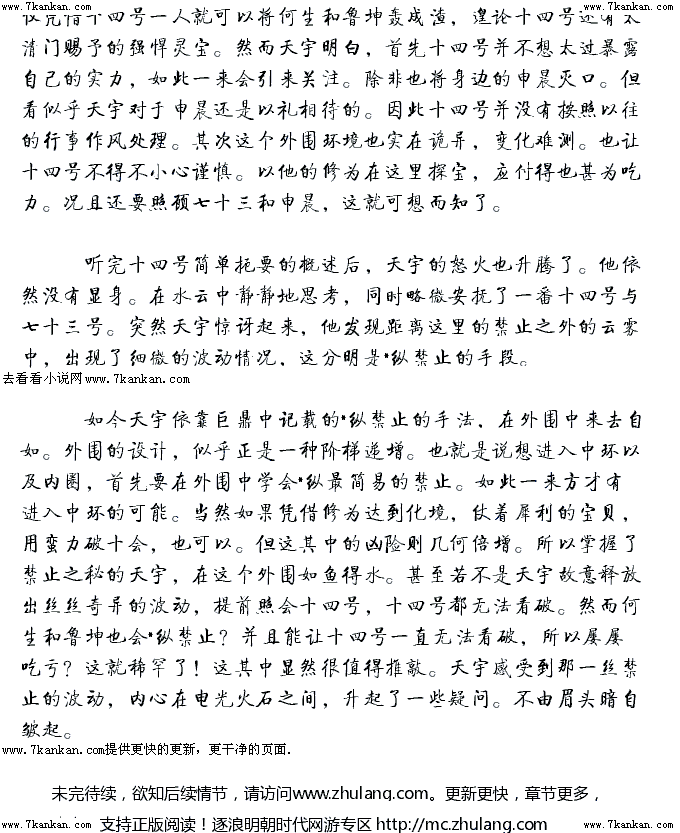 www.7kankan.com www.7kankan.com
仅凭借十四号一人就可以将何生和鲁坤轰成渣，遑论十四号还有太
清门赐予的强悍灵宝。然而天宇明白，首先十四号并不想太过暴露
自己的实力，如此一来会引来关注。除非也将身边的申晨灭口。但
看似乎天宇对于申晨还是以礼相待的。因此十四号并没有按照以往
的行事作风处理。其次这个外围环境也实在诡异，变化难测。也让
十四号不得不小心谨慎。以他的修为在这里探宝，应付得也甚为吃
力。况且还要照顾七十三和申晨，这就可想而知了。
听完十四号简单扼要的概述后，天宇的怒火也升腾了。他依
然没有显身。在水云中静静地思考，同时略微安抚了一番十四号与
七十三号。突然天宇惊讶起来，他发现距离这里的禁止之外的云雾
中，出现了细微的波动情况，这分明是*纵禁止的手段。
去看看小说网www.7kankan.com www.7kankan.com
如今天宇依靠巨鼎中记载的*纵禁止的手法，在外围中来去自
如。外围的设计，似乎正是一种阶梯递增。也就是说想进入中环以
及内圈，首先要在外围中学会*纵最简易的禁止。如此一来方才有
进入中环的可能。当然如果凭借修为达到化境，仗着犀利的宝贝，
用蛮力破十会，也可以。但这其中的凶险则几何倍增。所以掌握了
禁止之秘的天宇，在这个外围如鱼得水。甚至若不是天宇故意释放
出丝丝奇异的波动，提前照会十四号，十四号都无法看破。然而何
生和鲁坤也会*纵禁止？并且能让十四号一直无法看破，所以屡屡
吃亏？这就稀罕了！这其中显然很值得推敲。天宇感受到那一丝禁
止的波动，内心在电光火石之间，升起了一些疑问。不由眉头暗自
皱起。
www.7kankan.com提供更快的更新，更干净的页面. www.7kankan.com
未完待续，欲知后续情节，请访问www.zhulang.com。更新更快，章节更多，
www.7kankan.com 支持正版阅读！逐浪明朝时代网游专区 http://mc.zhulang.com www.7kankan.com